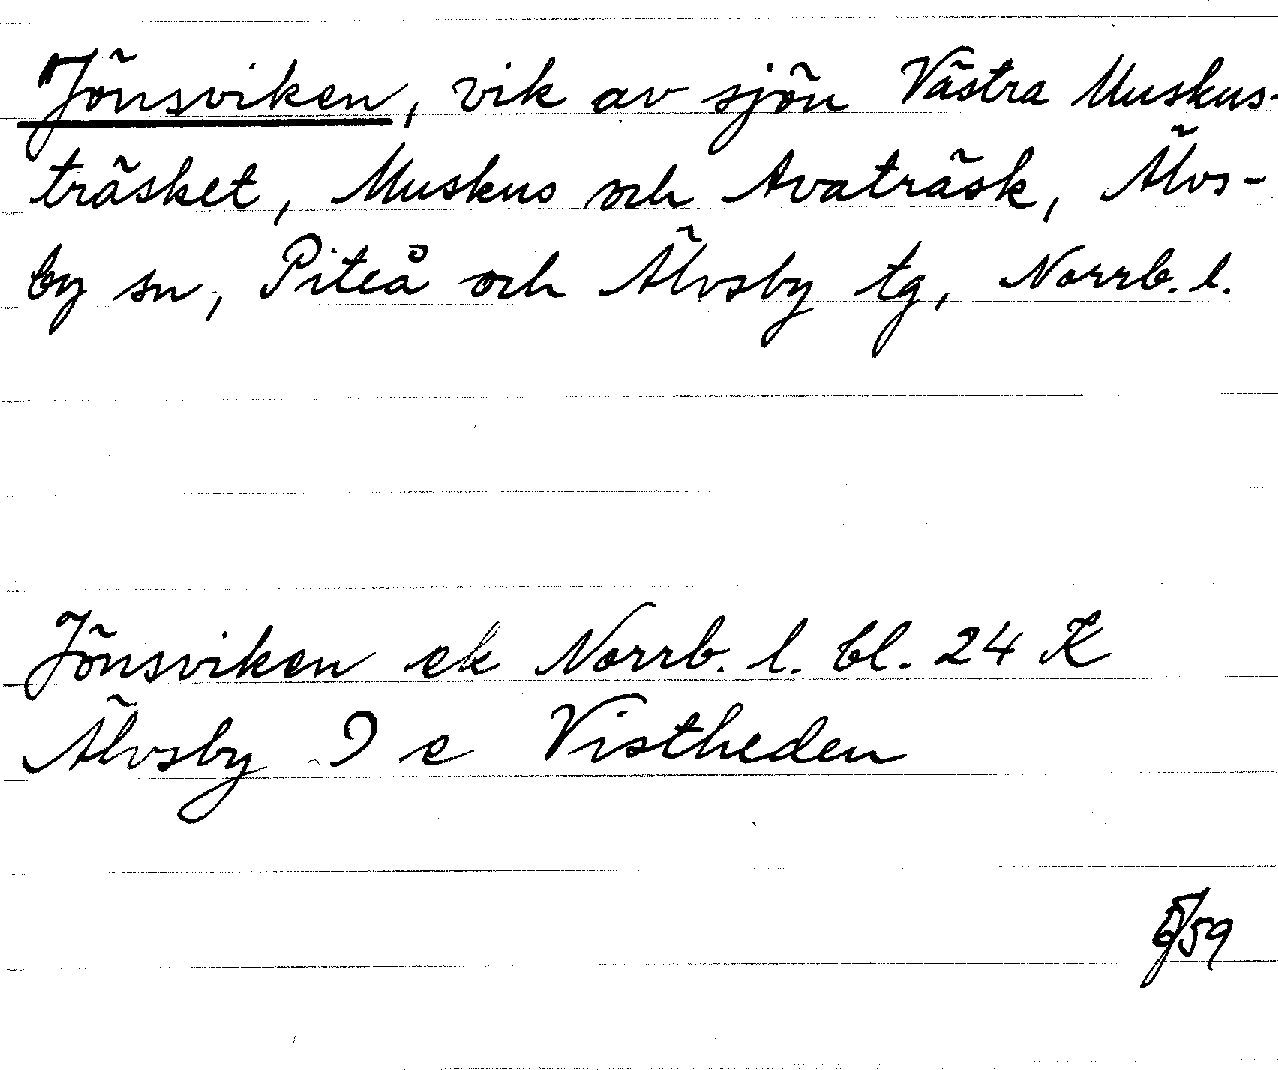 Jönsviken, vik av sjön Västra Muskus-
träsket, Muskus och Avaträsk, Älvs-
by sn, Piteå och Älvsby tg, Norrb. l.
Jönsviken ek Norrb. l. bl. 24 K
Älvsby 9 c Vistheden